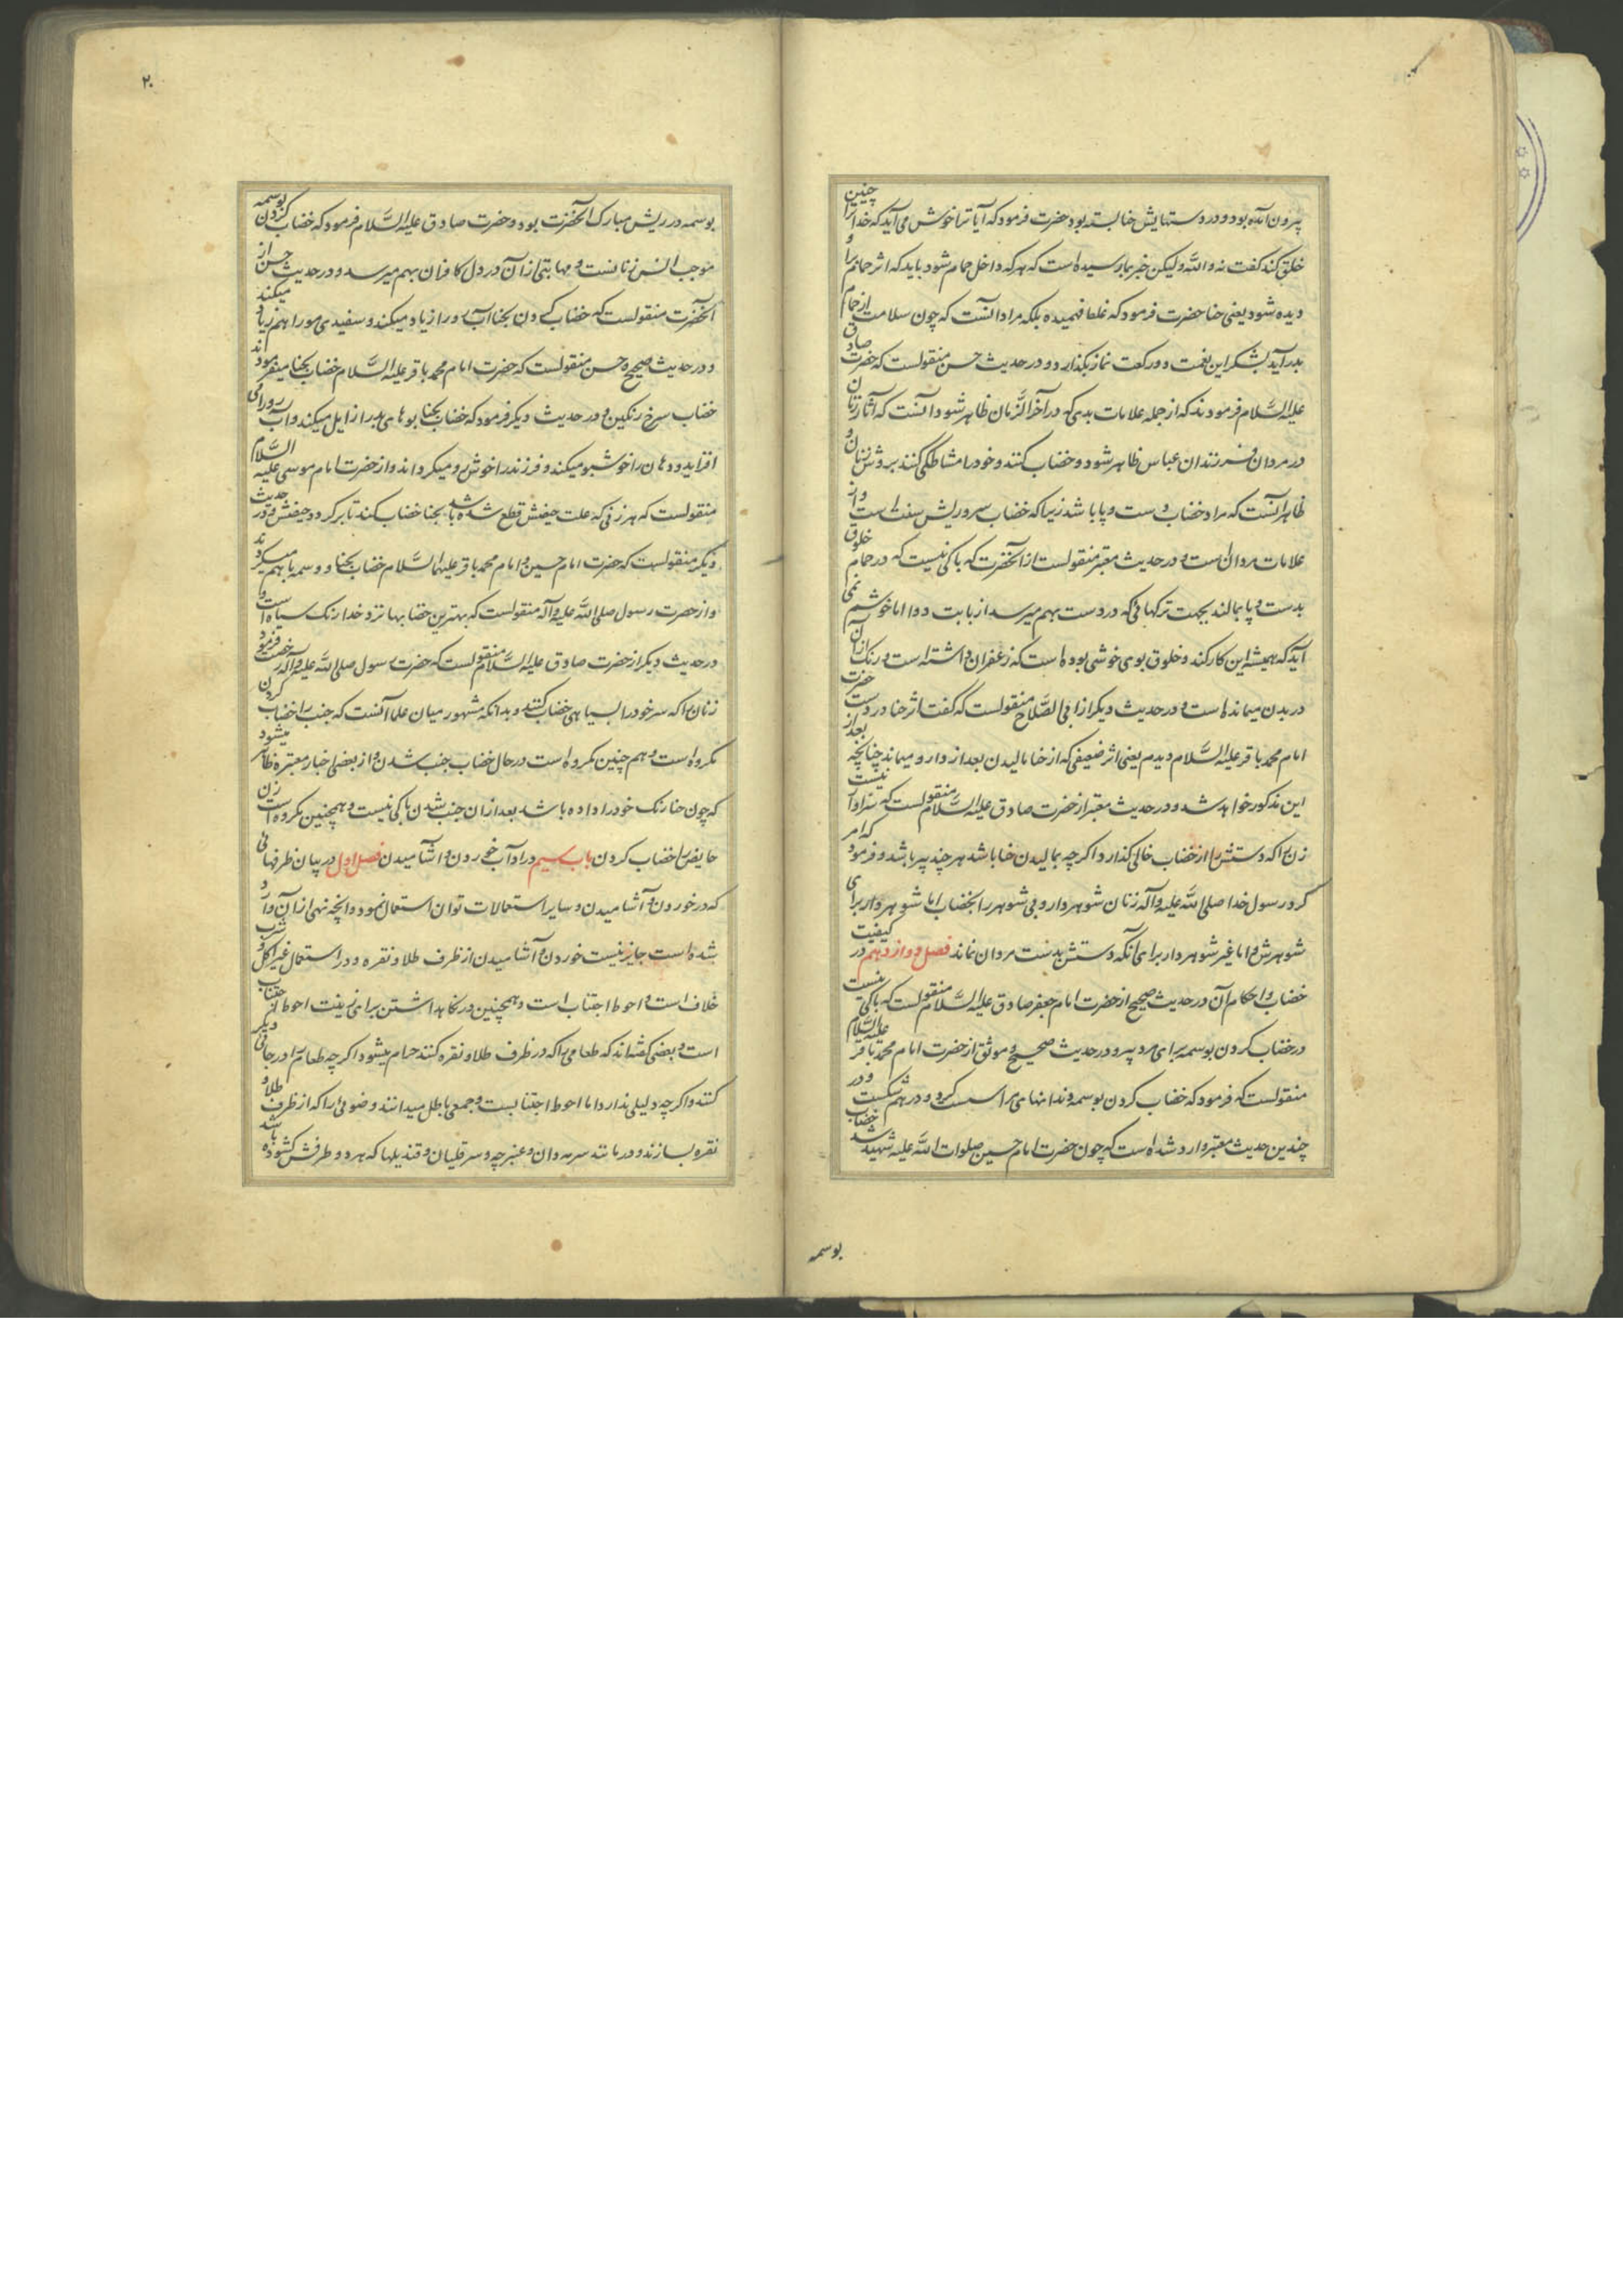 بیرون آمده بود و در دستهایش حنا بسته بود حضرت فرمود که آیا ترا خوش می آید که خدا ترا چنین
خلق کند گفت نه والله ولیکن خبر بما رسیده است که هر که داخل حمام شود باید که اثر حمام را و
دیده شود یعنی حنا حضرت فرمود که غلط فهمیده بلکه مراد آنست که چون سلامت از حمام
بدر آید بشکر این نعمت دو رکعت نماز بگذارد و در حدیث حسن منقولست که حضرت صادق
علیه السَّلام فرمودند که از جمله علامات بدی که در آخر الزّمان ظاهر شود آنست که آثار زنان
در مردان فرزندان عباس ظاهر شود و خضاب کنند و خود را مشاطگی کنند بروش زنان و
ظاهر آنست که مراد خضاب دست و پا باشد زیرا که خضاب سر و ریش سنت است و از
علامات مردان است و در حدیث معتبر منقولست از آنحضرت که باکی نیست که در حمام خلوق
بدست و پا بمالند بجهت ترکهائی که در دست بهم میرسد از بابت دوا اما خوشم نمی
آید که همیشه این کار کند و خلوق بوی خوشی بوده است که زعفران داشته است و رنگ آن
در بدن میمانده است و در حدیث دیگر از ابی الصَّلاح منقولست که گفت اثر حنا در دست حضرت
امام محمد باقر علیه السَّلام دیدم یعنی اثر ضعیفی که از حنا مالیدن بعد از دارو میماند چنانچه بعد از
این مذکور خواهد شد و در حدیث معتبر از حضرت صادق علیه السَّلام منقولست که سزاوار نیست
زن را که دستش را از خضاب خالی گذارد اگر چه بمالیدن حنا باشد هر چند پیر باشد و فرمود که امر
کرد رسول خدا صلی الله علیه و آله زنان شوهردار و بی شوهر را بخضاب اما شوهردار برای
شوهرش و اما غیر شوهردار برای آنکه دستش بدست مردان نماند فصل دوازدهم در کیفیت
خضاب و احکام آن در حدیث صحیح از حضرت امام جعفر صادق علیه السَّلام منقولست که باکی نیست
در خضاب کردن بوسمه برای مرد پیر و در حدیث صحیح و موثق از حضرت امام محمد باقر علیه السَّلام
منقولست که فرمود که خضاب کردن بوسمه دندانهای مرا سست کرد و در هم شکست و در
چندین حدیث معتبر وارد شده است که چون حضرت امام حسین صلوات الله علیه شهید شد خضاب
بوسمه
۲۰
بوسمه در ریش مبارک آنحضرت بود و حضرت صادق علیه السَّلام فرمود که خضاب کردن بوسمه
موجب انس زنانست و مهابتی از آن در دل کافران بهم میرسد و در حدیث حسن از
آنحضرت منقولست که خضاب کردن بحنا آب رو را زیاد میکند و سفیدی مو را هم زیاد میکند
و در حدیث صحیح و حسن منقولست که حضرت امام محمد باقر علیه السَّلام خضاب بحنا میفرمودند
خضاب سرخ رنگین و در حدیث دیگر فرمود که خضاب بحنا بوهای بد را زایل میکند و آب رو را می
افزاید و دهان را خوشبو میکند و فرزند را خوش رو میگرداند و از حضرت امام موسی علیه السَّلام
منقولست که هر زنی که علت حیضش قطع شده باشد بحنا خضاب کند تا برگردد حیضش و در حدیث
دیگر منقولست که حضرت امام حسین و امام محمد باقر علیهما السَّلام خضاب بحنا و وسمه با هم میکردند
و از حضرت رسول صلی الله علیه و آله منقولست که بهترین خضابها نزد خدا رنگ سیاه است و
در حدیث دیگر از حضرت صادق علیه السَّلام منقولست که حضرت رسول صلی الله علیه و آله رخصت فرمود
زنان را که سر خود را بسیاهی خضاب کنند و بدانکه مشهور میان علما آنست که جنب را خضاب کردن
مکروه است و هم چنین مکروه است در حال خضاب جنب شدن و از بعضی اخبار معتبره ظاهر میشود
که چون حنا رنگ خود را داده باشد بعد از آن جنب شدن باکی نیست و همچنین مکروه است زن
حایض را خضاب کردن باب سیم در آداب خوردن و آشامیدن فصل اول در بیان ظرفهائی
که در خوردن و آشامیدن و سایر استعمالات توان استعمال نمود و آنچه نهی از آن وارد
شده است جایز نیست خوردن و آشامیدن از ظرف طلا و نقره و در استعمال غیر اکل و شرب
خلاف است و احوط اجتناب است و همچنین در نگاهداشتن برای زینت احوط اجتناب
است و بعضی گفته اند که طعامی را که در ظرف طلا و نقره کنند حرام میشود اگر چه طعام را در جائی دیگر
کنند و اگر چه دلیلی ندارد اما احوط اجتنابست و جمعی باطل میدانند وضوئی را که از ظرف طلا و
نقره بسازند و در مانند سرمه دان و عنبرچه و سر قلیان و قندیلها که هر دو طرفش گشوده باشد